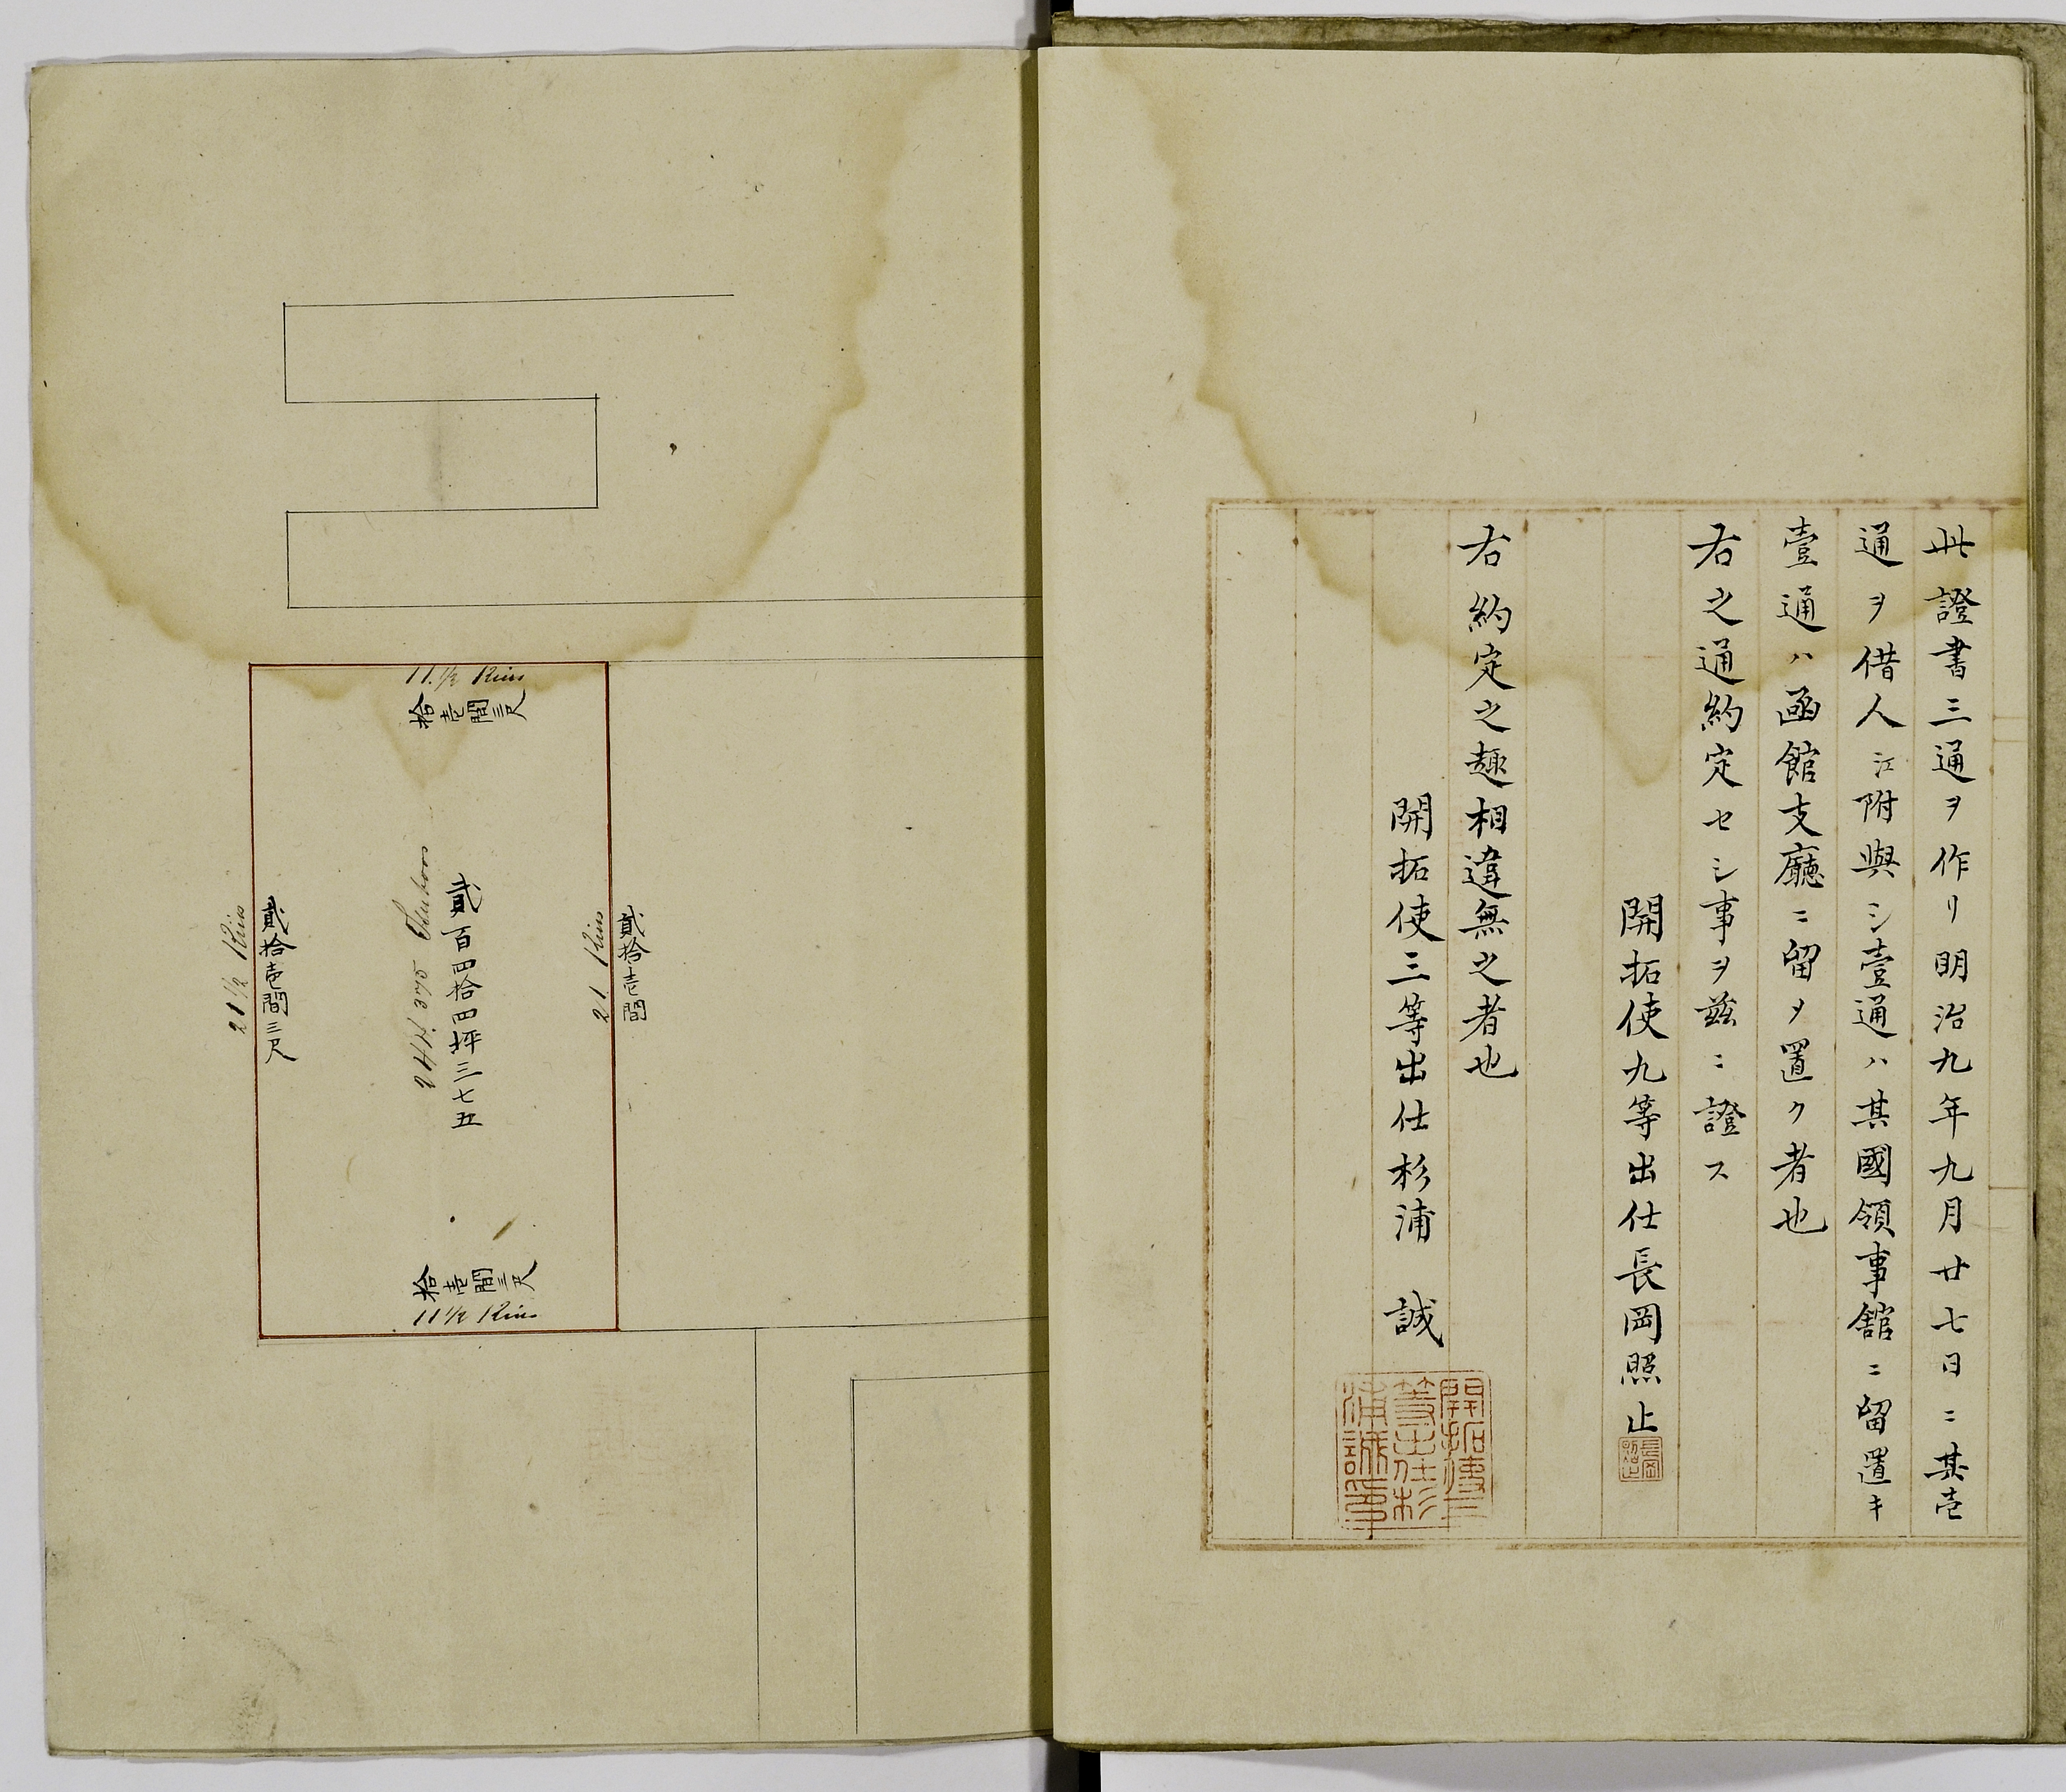 此證書三通ヲ作リ明治九年九月廿七日ニ其壱
通ヲ借人江附與シ壹通ハ其國領事館ニ留置キ
壹通ハ函館支廳ニ留メ置ク者也
右之通約定セシ事ヲ茲ニ證ス
開拓使九等出仕長岡照止
長岡照止
右約定之趣相違無之者也
開拓使三等出仕杉浦 誠
開拓使三等出仕杉浦誠印
11.½ Kins
拾壱間三尺
貳拾壱間
21 Kins
貳百四拾四坪三七五
244.375 Tsuboos
貳拾壱間三尺
21½ Kins
拾壱間三尺
11½ Kins